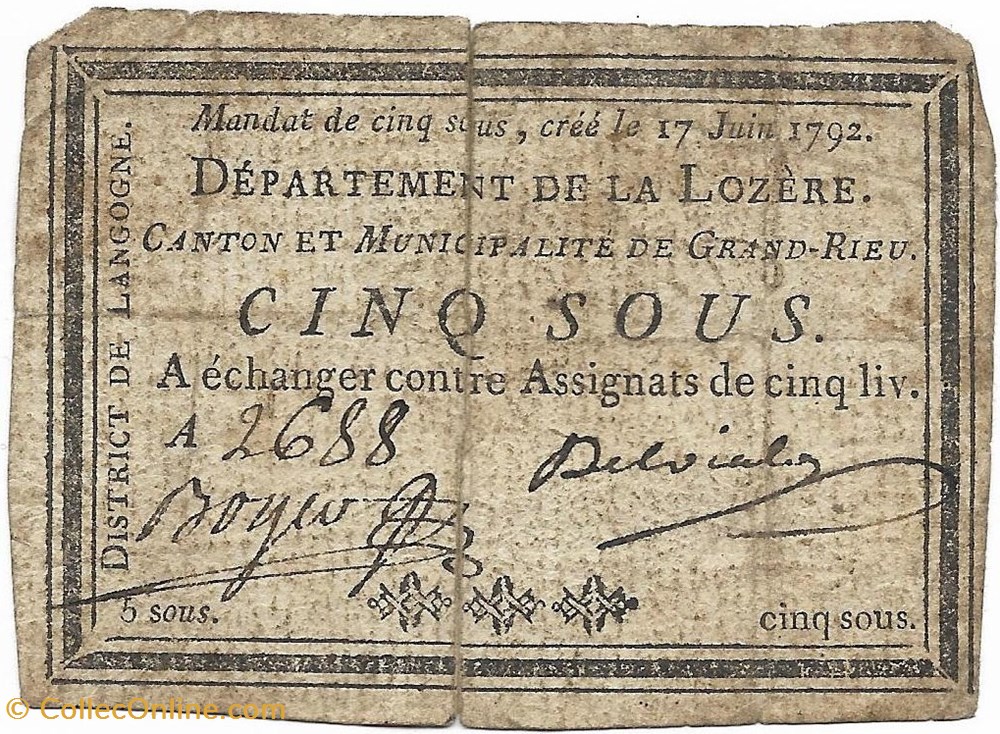 Mandat de cinq sous, créé le 17 Juin 1792.
DÉPARTEMENT DE LA LOZÈRE.
CANTON ET MUNICIPALITÉ DE GRAND-RIEU.
CINQ SOUS.
A échanger contre Assignats de cinq liv.
A 2688
Boyer
5 sous.
cinq sous.
DISTRICT DE LANGOGNE.
© CollecOnline.com